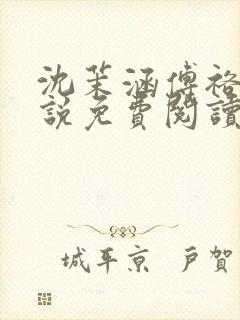 沈茉涵傅裕
說免費閱讀
城平京 戸賀